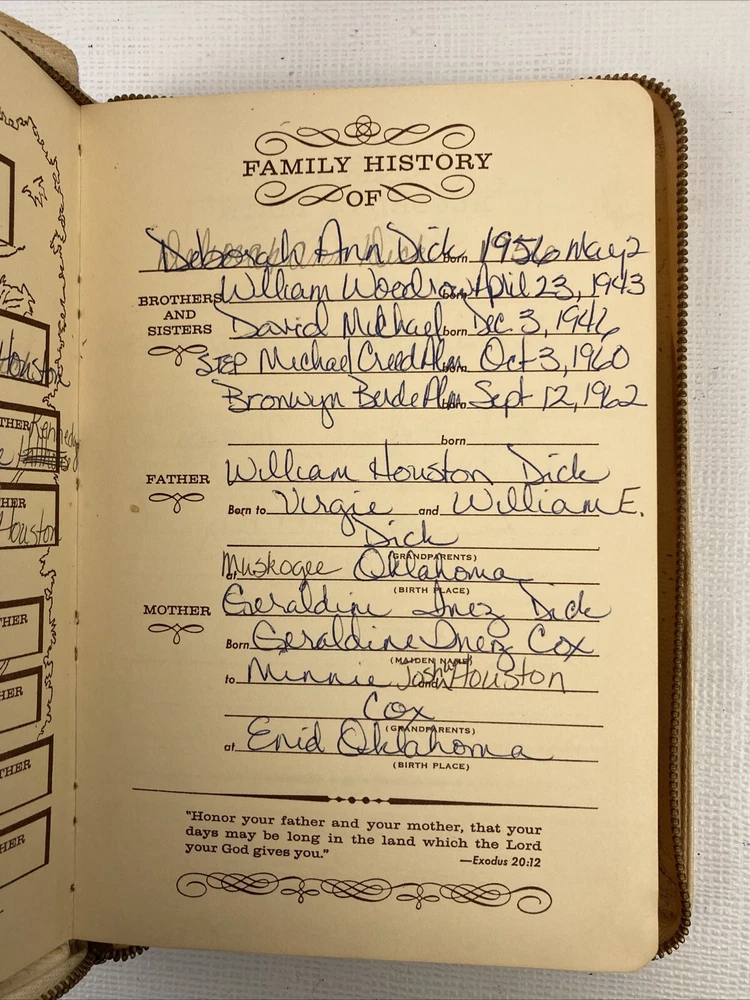 FAMILY HISTORY
OF
Deborah Ann Dick born 1956 May 2
BROTHERS AND SISTERS William Woodrow born April 23, 1943
David Michael born Dec. 3, 1946
STEP Michael Creed Alm born Oct 3, 1960
Bronwyn Alm born Sept 12, 1962
born
FATHER William Houston Dick
Born to Virgie and William E.
Dick
(GRANDPARENTS)
at Muskogee Oklahoma
(BIRTH PLACE)
MOTHER Geraldine Inez Dick
Born Geraldine Inez Cox
(MAIDEN NAME)
to Minnie and Houston
Cox
(GRANDPARENTS)
at Enid Oklahoma
(BIRTH PLACE)
"Honor your father and your mother, that your
days may be long in the land which the Lord
your God gives you."
—Exodus 20:12
Houston
THER Kennedy
HER
Houston
THER
HER
THER
HER